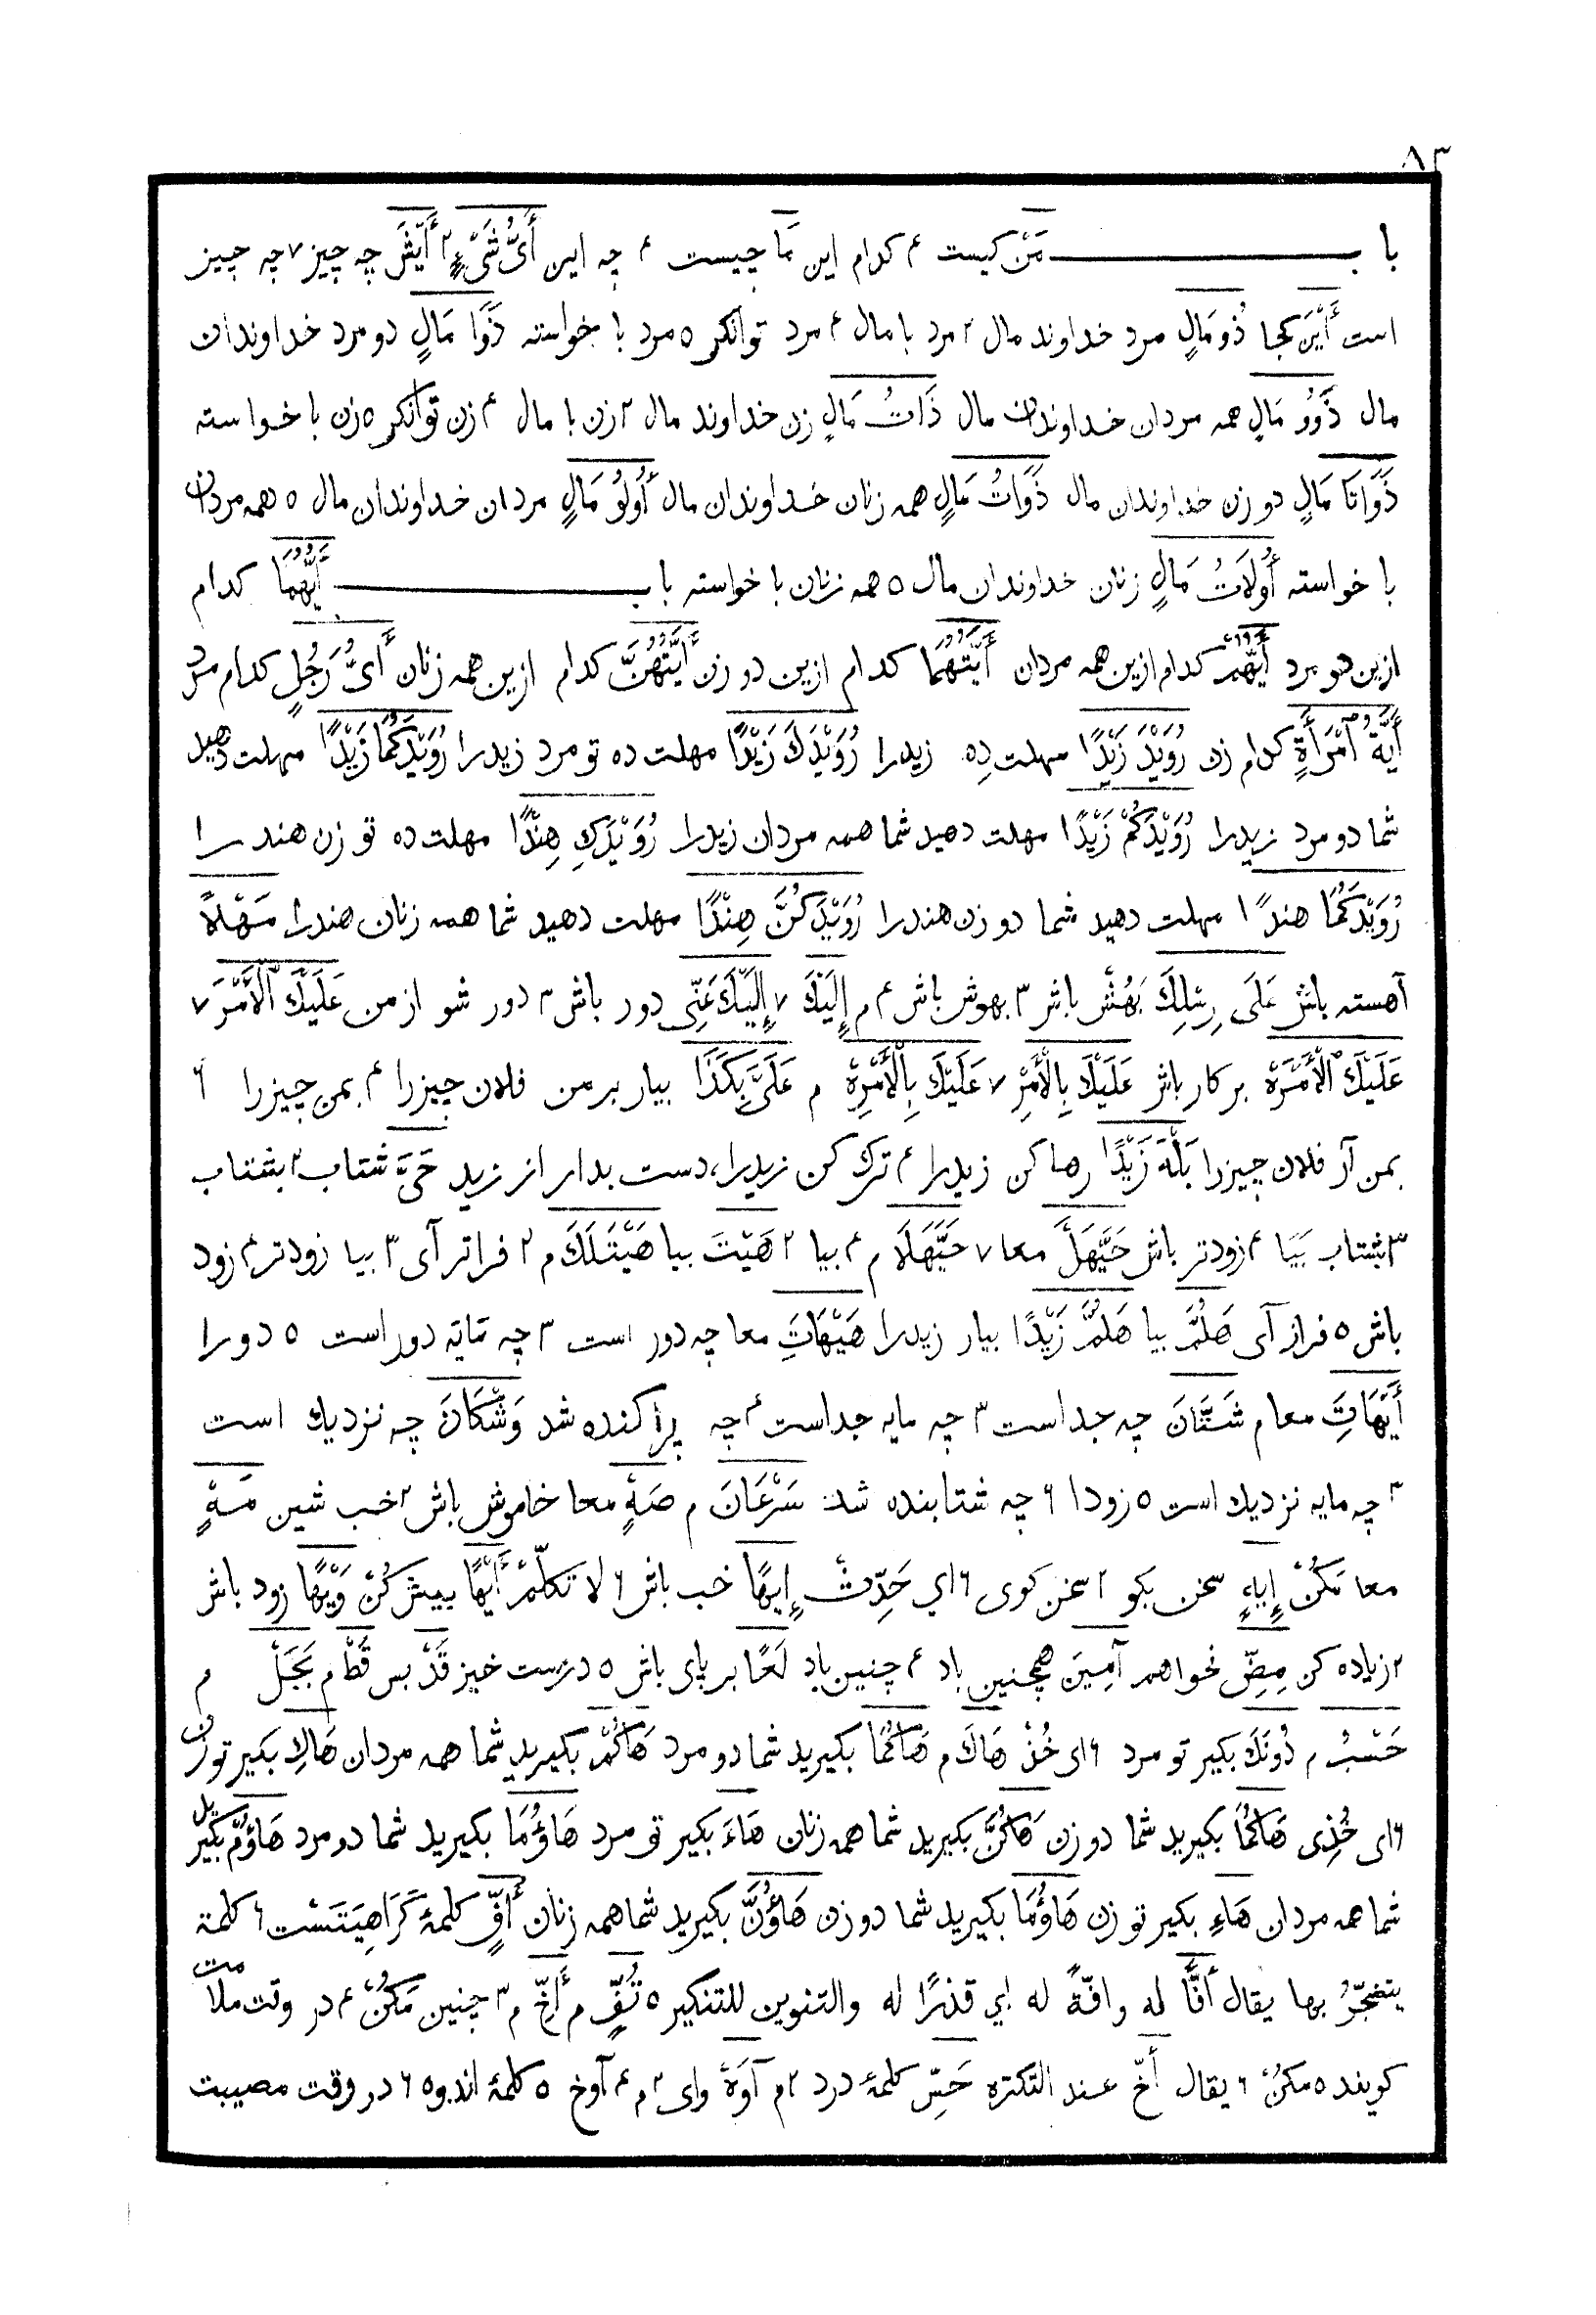 ٨٣
باب مَنْ کیست ۴ کدام این مَا چیست ۴ چه این أَیُّ شَیْءٍ ٢ أَیْشَ چه چیز ٧ چه چیز
است أَیْنَ کجا ذُو مَالٍ مرد خداوند مال ٢ مرد با مال ۴ مرد توانکر ۵ مرد با خواسته ذَوَا مَالٍ دو مرد خداوندان
مال ذَوُو مَالٍ همه مردان خداوندان مال ذَاتُ مَالٍ زن خداوند مال ٢ زن با مال ۴ زن توانکر ۵ زن با خواسته
ذَوَاتَا مَالٍ دو زن خداوندان مال ذَوَاتُ مَالٍ همه زنان خداوندان مال أُولُو مَالٍ مردان خداوندان مال ۵ همه مردان
با خواسته أُولَاتُ مَالٍ زنان خداوندان مال ۵ همه زنان با خواسته باب أَیُّهُمَا کدام
ازین دو مرد أَیُّهُمْ کدام ازین همه مردان أَیَّتُهُمَا کدام ازین دو زن أَیَّتُهُنَّ کدام ازین همه زنان أَیُّ رَجُلٍ کدام مرد
أَیَّةُ ٱمْرَأَةٍ کدام زن رُوَیْدَ زَیْدًا مهلت دِه زیدرا رُوَیْدَكَ زَیْدًا مهلت ده تو مرد زیدرا رُوَیْدَکُمَا زَیْدًا مهلت دهید
شما دو مرد زیدرا رُوَیْدَکُمْ زَیْدًا مهلت دهید شما همه مردان زیدرا رُوَیْدَكِ هِنْدًا مهلت ده تو زن هند را
رُوَیْدَکُمَا هندًا مهلت دهید شما دو زن هندرا رُوَیْدَکُنَّ هِنْدًا مهلت دهید شما همه زنان هندرا مَهْلاً
آهسته باش عَلَی رِسْلِكَ بَهُش باش ٣ بهوش باش ۴ م إِلَیْكَ ٧ إِلَیْكَ عَنِّی دور باش ٣ دور شو از من عَلَیْكَ ٱلْأَمْرَ ٧
عَلَیْكَ ٱلْأَمْرَةَ بر کار باش عَلَیْكَ بِالْأَمْرِ ٧ عَلَیْكَ بِالْأَمْرَةِ م عَلَیَّ بِكَذَا بیار بر من فلان چیزرا ۴ بمن چیزرا ۶
بمن آر فلان چیزرا بَلْهَ زَیْدًا رها کن زیدرا ۴ ترك کن زیدرا، دست بدار از زید حَیَّ شتاب ٢ بشتاب
٣ بشتاب بَیَا ۴ زودتر باش حَیَّهَلَ معا ٧ حَیَّهَلَا م ۴ بیا ٢ هَیْتَ بیا هَیْتَ لَكَ م ٢ فراتر آی ٣ بیا زودتر ۴ زود
باش ۵ فراز آی هَلُمَّ بیا هَلُمَّ زَیْدًا بیار زیدرا هَیْهَاتَ معا چه دور است ٣ چه مَایَه دور است ۵ دورا
أَیْهَاتَ معا م شَتَّانَ چه جداست ٣ چه مایه جداست ۴ چه پراکنده شد وَشْكَانَ چه نزدیك است
٣ چه مایه نزدیك است ۵ زودا ۶ چه شتابنده شد سَرْعَانَ م صَهٍ معا خاموش باش ٢ خب شین مَهٍ
معا مَكُنْ إِیهٍ سخن بکو ٢ سخن کوی ۶ اي حَدِّثْ إِیهًا خب باش ۶ لا تکلّمْ أَیْهًا بیش کُنْ وَیْهًا زود باش
٢ زیاده کن مِضِّ نخواهم آمِینَ همچنین باد ۴ چنین باد لَعًا بر پای باش ۵ درست خیز قَدْ بس قَطْ م بَجَلْ م
حَسْبُ م دُونَكَ بکیر تو مرد ۶ ای خُذْ هَاكَ م هَاكُمَا بکیرید شما دو مرد هَاكُمْ بکیرید شما همه مردان هَاكِ بکیر تو زن
۶ ای خُذِی هَاكُمَا بکیرید شما دو زن هَاكُنَّ بکیرید شما همه زنان هَاءَ بکیر تو مرد هَاؤُمَا بکیرید شما دو مرد هَاؤُمْ بکیرید
شما همه مردان هَاءِ بکیر تو زن هَاؤُمَا بکیرید شما دو زن هَاؤُنَّ بکیرید شما همه زنان أُفٍّ کلمهٔ کَرَاهِیَتَسْت ۶ کلمة
یتضجّرُ بها یقال أُفًّا له وافّةً له اي قذرًا له والتنوین للتنکیر ۵ تُفٍّ م أَخِّ م ٣ چنین مَكُنْ ۴ در وقت ملامت
کویند ۵ مکنْ ۶ یقال أَخّ عند التکره حَسِّ کلمهٔ درد ٢ م آوَهْ وای ٢ م ۴ آوخ ۵ کلمهٔ اندوه ۶ در وقت مصیبت